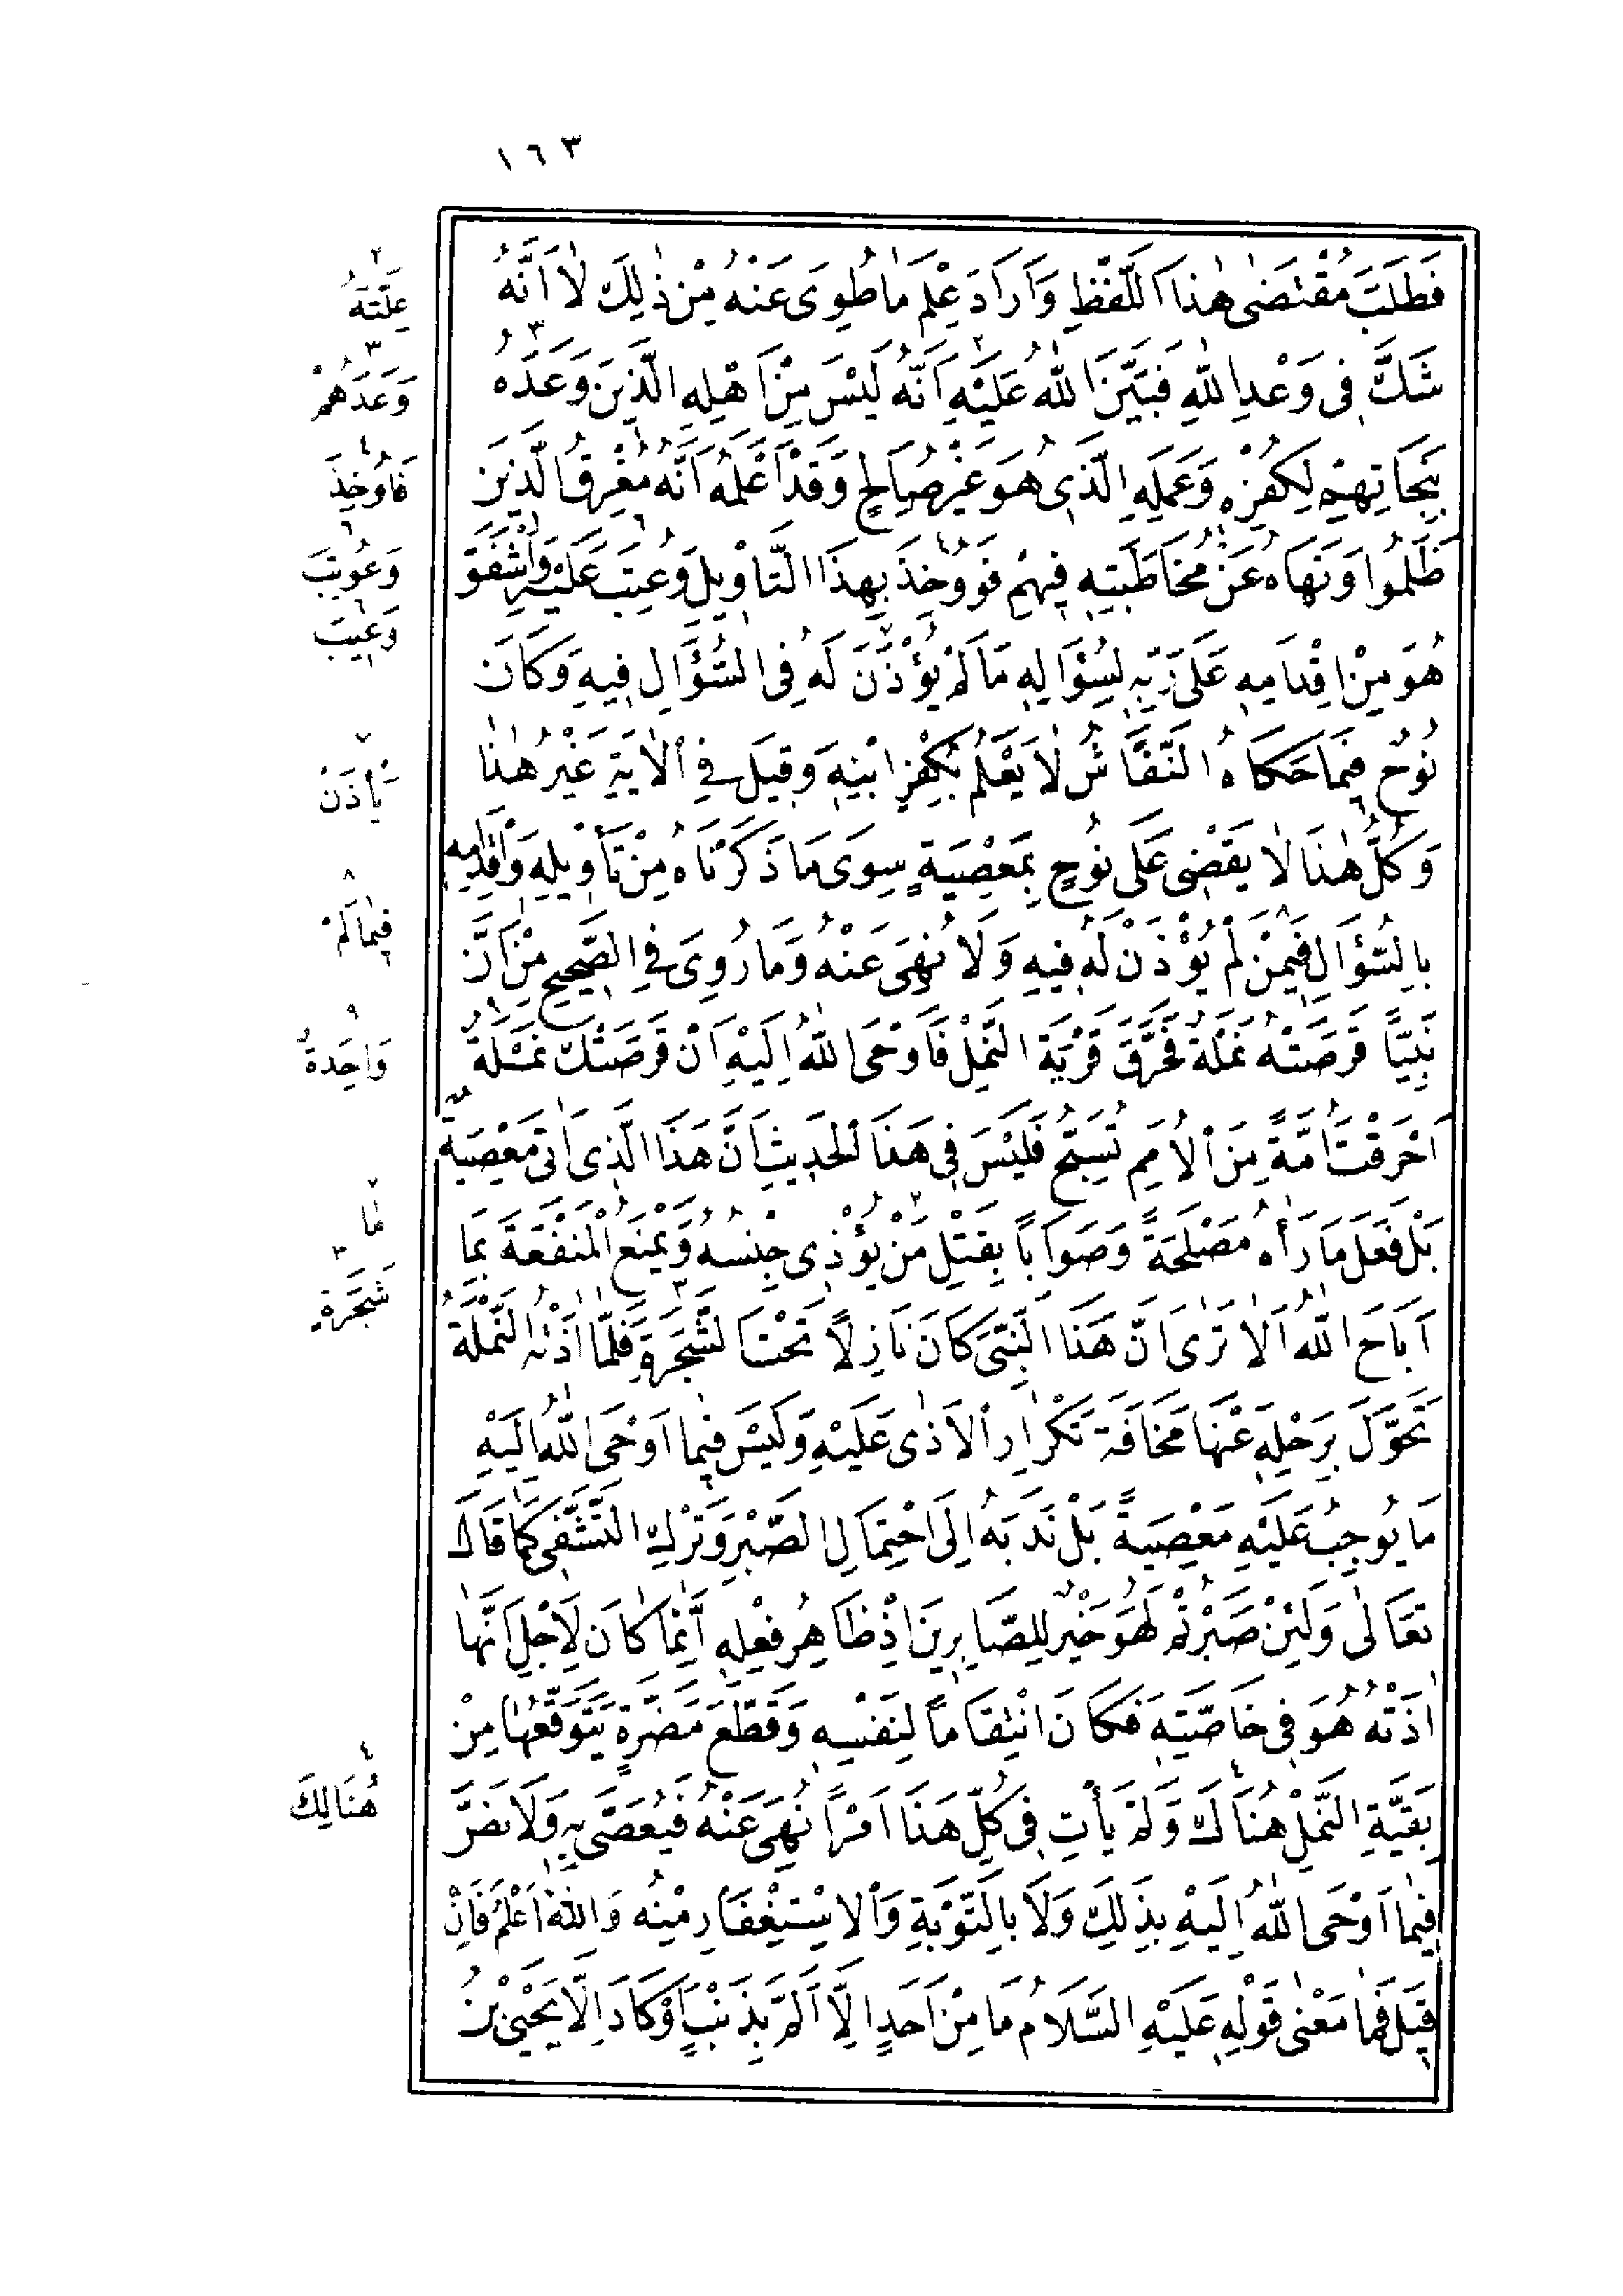 ١٦٣
فَطَلَبَ مُقْتَضٰى هٰذَا اللَّفْظِ وَاَرَادَ عِلْمَ مَا طُوِىَ عَنْهُ مِنْ ذٰلِكَ لَا اَنَّهُ
شَكَّ فِى وَعْدِ اللّٰهِ فَبَيَّنَ اللّٰهُ عَلَيْهِ اَنَّهُ لَيْسَ مِنْ اَهْلِهِ الَّذِينَ وَعَدَهُ
بِنَجَاتِهِمْ لِكُفْرِهِ وَعَمَلِهِ الَّذِى هُوَ غَيْرُ صَالِحٍ وَقَدْ اَعْلَمَهُ اَنَّهُ مُغْرِقُ الَّذِينَ
ظَلَمُوا وَنَهَاهُ عَنْ مُخَاطَبَتِهِ فِيهِمْ فَوُوخِذَ بِهٰذَا التَّأْوِيلِ وَعُتِبَ عَلَيْهِ وَاَشْفَقَ
هُوَ مِنْ اِقْدَامِهِ عَلَى رَبِّهِ لِسُؤَالِهِ مَا لَمْ يُؤْذَنْ لَهُ فِى السُّؤَالِ فِيهِ وَكَانَ
نُوحٌ فِيمَا حَكَاهُ النَّقَّاشُ لَا يَعْلَمُ بِكُفْرِ ابْنِهِ وَقِيلَ فِى الْاٰيَةِ غَيْرُ هٰذَا
وَكُلُّ هٰذَا لَا يَقْضِى عَلَى نُوحٍ بِمَعْصِيَةٍ سِوَى مَا ذَكَرْنَاهُ مِنْ تَأْوِيلِهِ وَاِقْدَامِهِ
بِالسُّؤَالِ فِيمَنْ لَمْ يُؤْذَنْ لَهُ فِيهِ وَلَا نُهِىَ عَنْهُ وَمَا رُوِىَ فِى الصَّحِيحِ مِنْ اَنَّ
نَبِيًّا قَرَصَتْهُ نَمْلَةٌ فَحَرَّقَ قَرْيَةَ النَّمْلِ فَاَوْحَى اللّٰهُ اِلَيْهِ اَنْ قَرَصَتْكَ نَمْلَةٌ
اَحْرَقْتَ اُمَّةً مِنَ الْاُمَمِ تُسَبِّحُ فَلَيْسَ فِى هٰذَا الْحَدِيثِ اَنَّ هٰذَا الَّذِى اَتٰى مَعْصِيَةٌ
بَلْ فَعَلَ مَا رَاٰهُ مَصْلَحَةً وَصَوَابًا بِقَتْلِ مَنْ يُؤْذِى جِنْسُهُ وَيَمْنَعُ الْمَنْفَعَةَ بِمَا
اَبَاحَ اللّٰهُ اَلَا تَرٰى اَنَّ هٰذَا النَّبِىَّ كَانَ نَازِلًا تَحْتَ الشَّجَرَةِ فَلَمَّا اٰذَتْهُ النَّمْلَةُ
تَحَوَّلَ بِرَحْلِهِ عَنْهَا مَخَافَةَ تَكْرَارِ الْاَذٰى عَلَيْهِ وَلَيْسَ فِيمَا اَوْحَى اللّٰهُ اِلَيْهِ
مَا يُوجِبُ عَلَيْهِ مَعْصِيَةً بَلْ نَدَبَهُ اِلَى احْتِمَالِ الصَّبْرِ وَتَرْكِ التَّشَفِّى كَمَا قَالَ
تَعَالٰى وَلَئِنْ صَبَرْتُمْ لَهُوَ خَيْرٌ لِلصَّابِرِينَ اِذْ ظَاهِرُ فِعْلِهِ اِنَّمَا كَانَ لِاَجْلِ اَنَّهَا
اٰذَتْهُ هُوَ فِى خَاصَّتِهِ فَكَانَ انْتِقَامًا لِنَفْسِهِ وَقَطْعَ مَضَرَّةٍ يَتَوَقَّعُهَا مِنْ
بَقِيَّةِ النَّمْلِ هُنَاكَ وَلَمْ يَأْتِ فِى كُلِّ هٰذَا اَمْرًا نُهِىَ عَنْهُ فَيُعَصّٰى بِهِ وَلَا نَصَّ
فِيمَا اَوْحَى اللّٰهُ اِلَيْهِ بِذٰلِكَ وَلَا بِالتَّوْبَةِ وَالْاِسْتِغْفَارِ مِنْهُ وَاللّٰهُ اَعْلَمُ فَاِنْ
قِيلَ فَمَا مَعْنٰى قَوْلِهِ عَلَيْهِ السَّلَامُ مَا مِنْ اَحَدٍ اِلَّا اَلَمَّ بِذَنْبٍ اَوْ كَادَ اِلَّا يَحْيَىٰ بْنُ
٢
عِلَّتَهُ
٣
وَعَدَهُمْ
٤
فَاُوخِذَ
٦
وَعُوتِبَ
٦
وَعِيبَ
٧
يَأْذَنْ
٨
فِيمَا لَمْ
٩
وَاحِدَةٌ
٧
مَا
٣
شَجَرَةٍ
٤
هُنَالِكَ